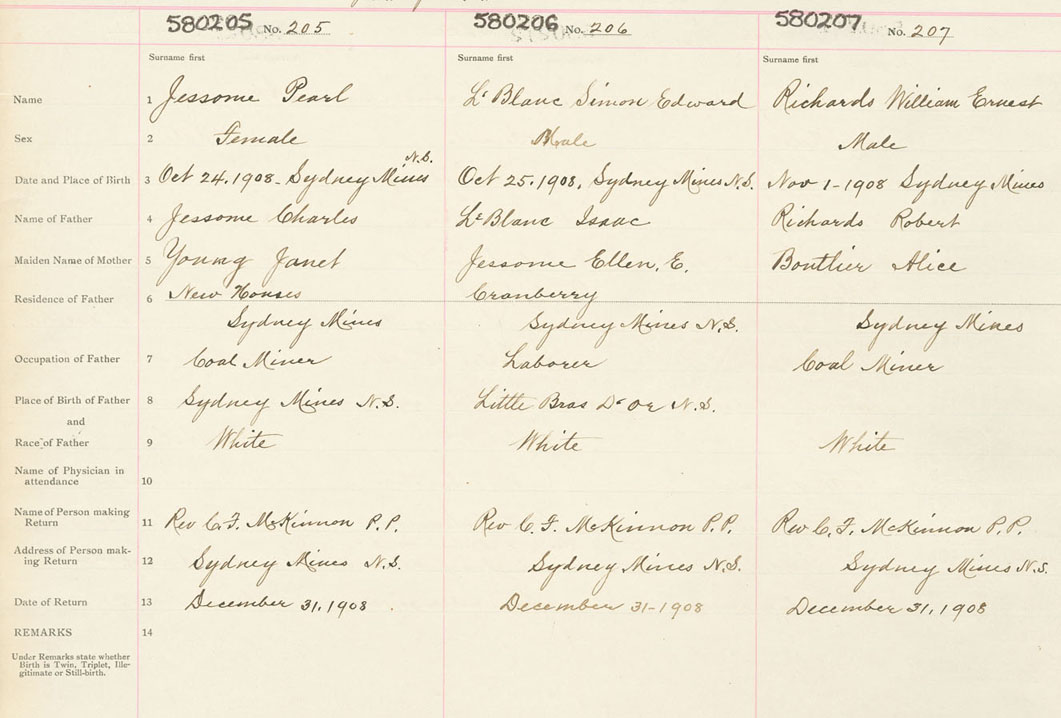 580205 No. 205
580206 No. 206
580207 No. 207
Surname first
Surname first
Surname first
Name 1 Jessome Pearl
Le Blanc Simon Edward
Richards William Ernest
Sex 2 Female
Male
Male
N.S.
Date and Place of Birth 3 Oct 24, 1908 - Sydney Mines
Oct 25, 1908, Sydney Mines N.S.
Nov 1 - 1908 Sydney Mines
Name of Father 4 Jessome Charles
Le Blanc Isaac
Richards Robert
Maiden Name of Mother 5 Young Janet
Jessome Ellen. E.
Bonthier Alice
Residence of Father 6 New Houses
Cranberry
Sydney Mines
Sydney Mines N.S.
Sydney Mines
Occupation of Father 7 Coal Miner
Laborer
Coal Miner
Place of Birth of Father 8 Sydney Mines N.S.
Little Bras D'Or N.S.
and
Race of Father 9 White
White
White
Name of Physician in
attendance 10
Name of Person making
Return 11 Rev C. F. McKinnon P.P.
Rev C. F. McKinnon P.P.
Rev C. F. McKinnon P.P.
Address of Person mak-
ing Return 12 Sydney Mines N.S.
Sydney Mines N.S.
Sydney Mines N.S.
Date of Return 13 December 31, 1908
December 31 - 1908
December 31, 1908
REMARKS 14
Under Remarks state whether
Birth is Twin, Triplet, Ille-
gitimate or Still-birth.